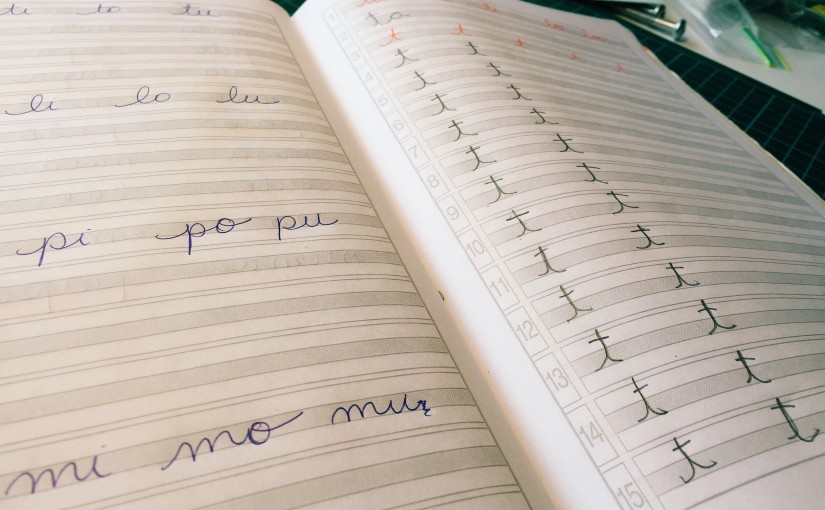 ti to tu
li lo lu
pi po pu
mi mo mu
ta
4 t t
5 t t
6 t t
7 t t
8 t t
9 t t
10 t t
11 t t
12 t t
13 t t
14 t t
15 t t